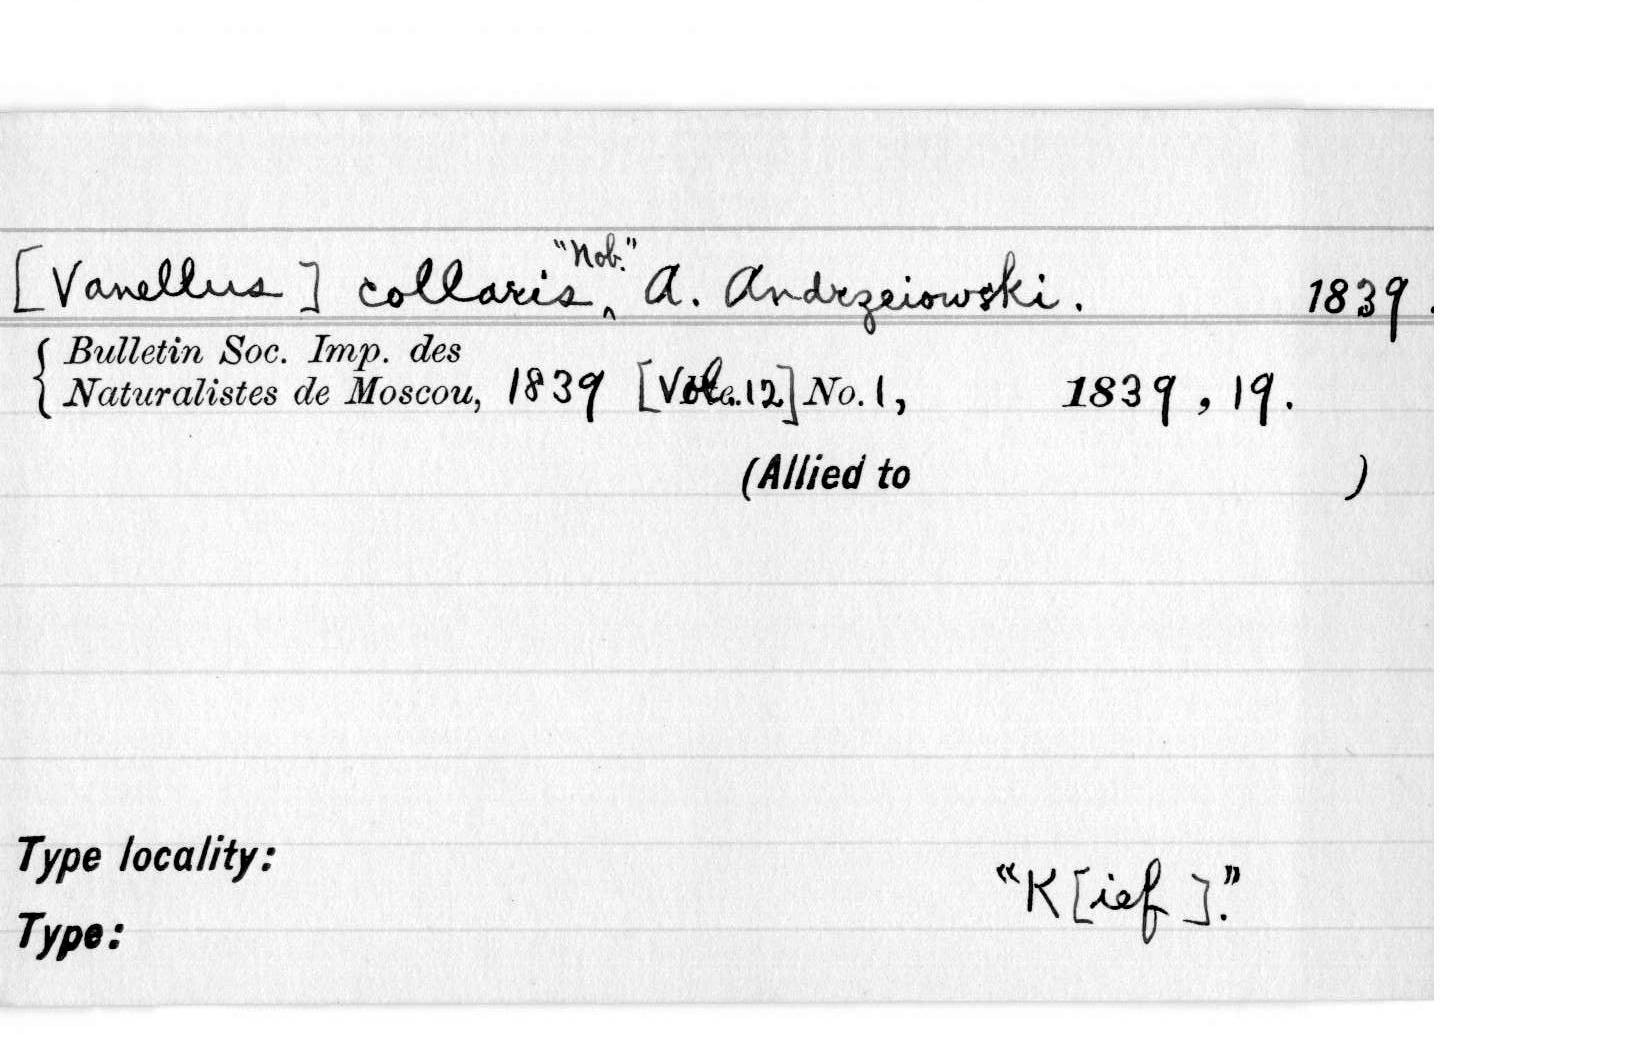 [Vanellus] collaris "Nob." A. Andrzeiowski. 1839.
Bulletin Soc. Imp. des
Naturalistes de Moscou, 1839 [Vol. 12] No. 1, 1839, 19.
(Allied to )
Type locality: "K[ief]."
Type: